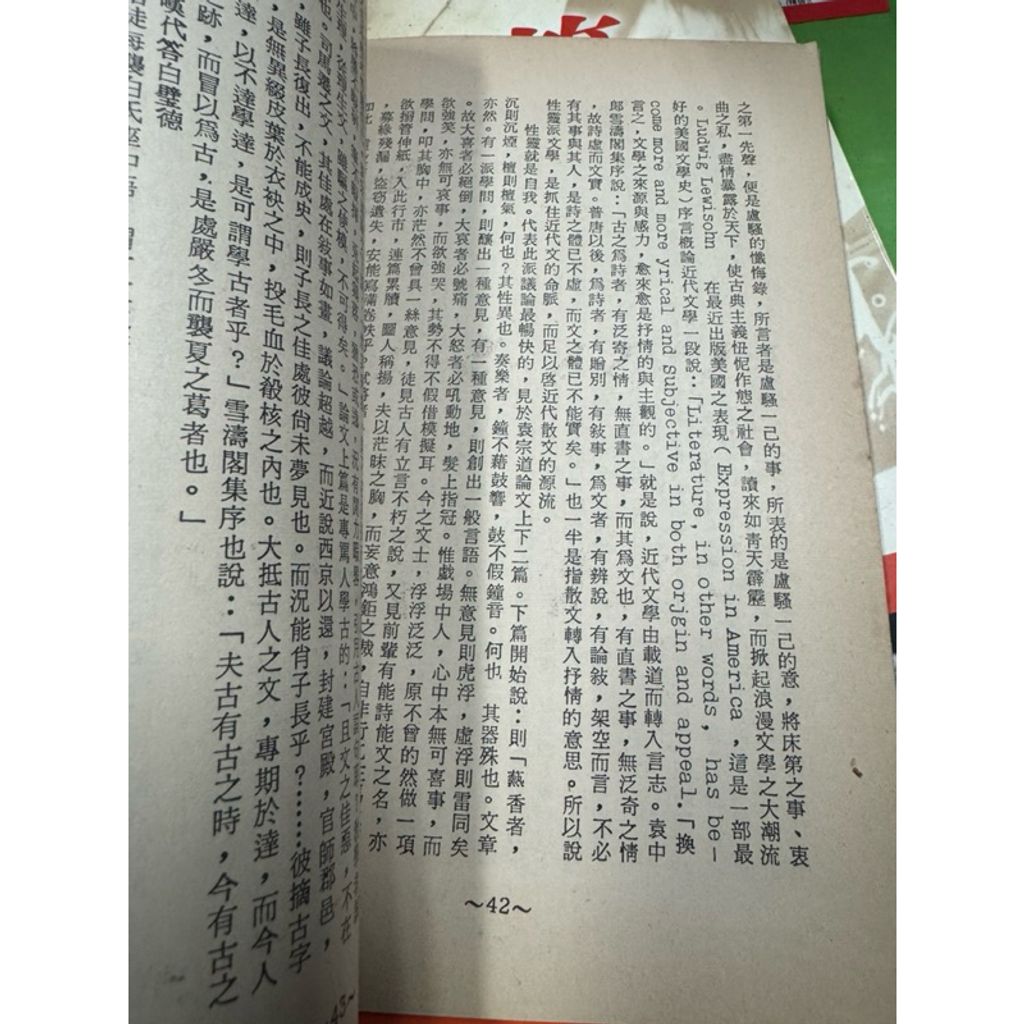 之第一先聲，便是盧騷的懺悔錄，所言者是盧騷一己的事，所表的是盧騷一己的意，將床第之事、衷
曲之私，盡情暴露於天下，使古典主義忸怩作態之社會，讀來如青天霹靂，而掀起浪漫文學之大潮流
。Ludwig Lewisohn 在最近出版美國之表現（Expression in America，這是一部最
好的美國文學史）序言概論近代文學一段說：「Literature, in other words, has be-
come more and more yrical and Subjective in both orjgin and appeal.「換
言之，文學之來源與感力，愈來愈是抒情的與主觀的。」就是說，近代文學由載道而轉入言志。袁中
郎雪濤閣集序說：「古之爲詩者，有泛寄之情，無直書之事，而其爲文也，有直書之事，無泛奇之情
，故詩虛而文實。普唐以後，爲詩者，有贈別，有敍事，爲文者，有辨說，有論敍，架空而言，不必
有其事與其人，是詩之體已不虛，而文之體已不能實矣。」也一半是指散文轉入抒情的意思。所以說
性靈派文學，是抓住近代文的命脈，而足以啓近代散文的源流。
性靈就是自我。代表此派議論最暢快的，見於袁宗道論文上下二篇。下篇開始說：則「爇香者，
沉則沉煙，檀則檀氣，何也？其性異也。奏樂者，鐘不藉鼓響，鼓不假鐘音。何也　其器殊也。文章
亦然。有一派學問，則釀出一種意見，有一種意見，則創出一般言語。無意見則虎浮，虛浮則雷同矣
。故大喜者必絕倒，大哀者必號痛，大怒者必吼動地，髮上指冠。惟戲場中人，心中本無可喜事，而
欲強笑，亦無可哀事，而欲強哭，其勢不得不假借模擬耳。今之文士，浮浮泛泛，原不曾的然做一項
學問，叩其胸中，亦茫然不曾具一絲意見，徒見古人有立言不朽之說，又見前輩有能詩能文之名，亦
欲搦管伸紙，入此行市，連篇累牘，圖人稱揚，夫以茫昧之胸，而妄意鴻鉅之裁，自非行
，募緣殘漏，盜窃遺失，安能寫滿卷帙乎？試
~42~
也。司馬遷之文，其佳處在敍事如畫，議論超越，而近說西京以還，封建宮殿，官師郡邑，
，雖子長復出，不能成史，則子長之佳處彼尙未夢見也。而況能肖子長乎？……彼摘古字
，是無異綴皮葉於衣袂之中，投毛血於殽核之內也。大抵古人之文，專期於達，而今人
達，以不達學達，是可謂學古者乎？」雪濤閣集序也說：「夫古有古之時，今有古之
之跡，而冒以爲古，是處嚴冬而襲夏之葛者也。」
漢代答白璧德
43~